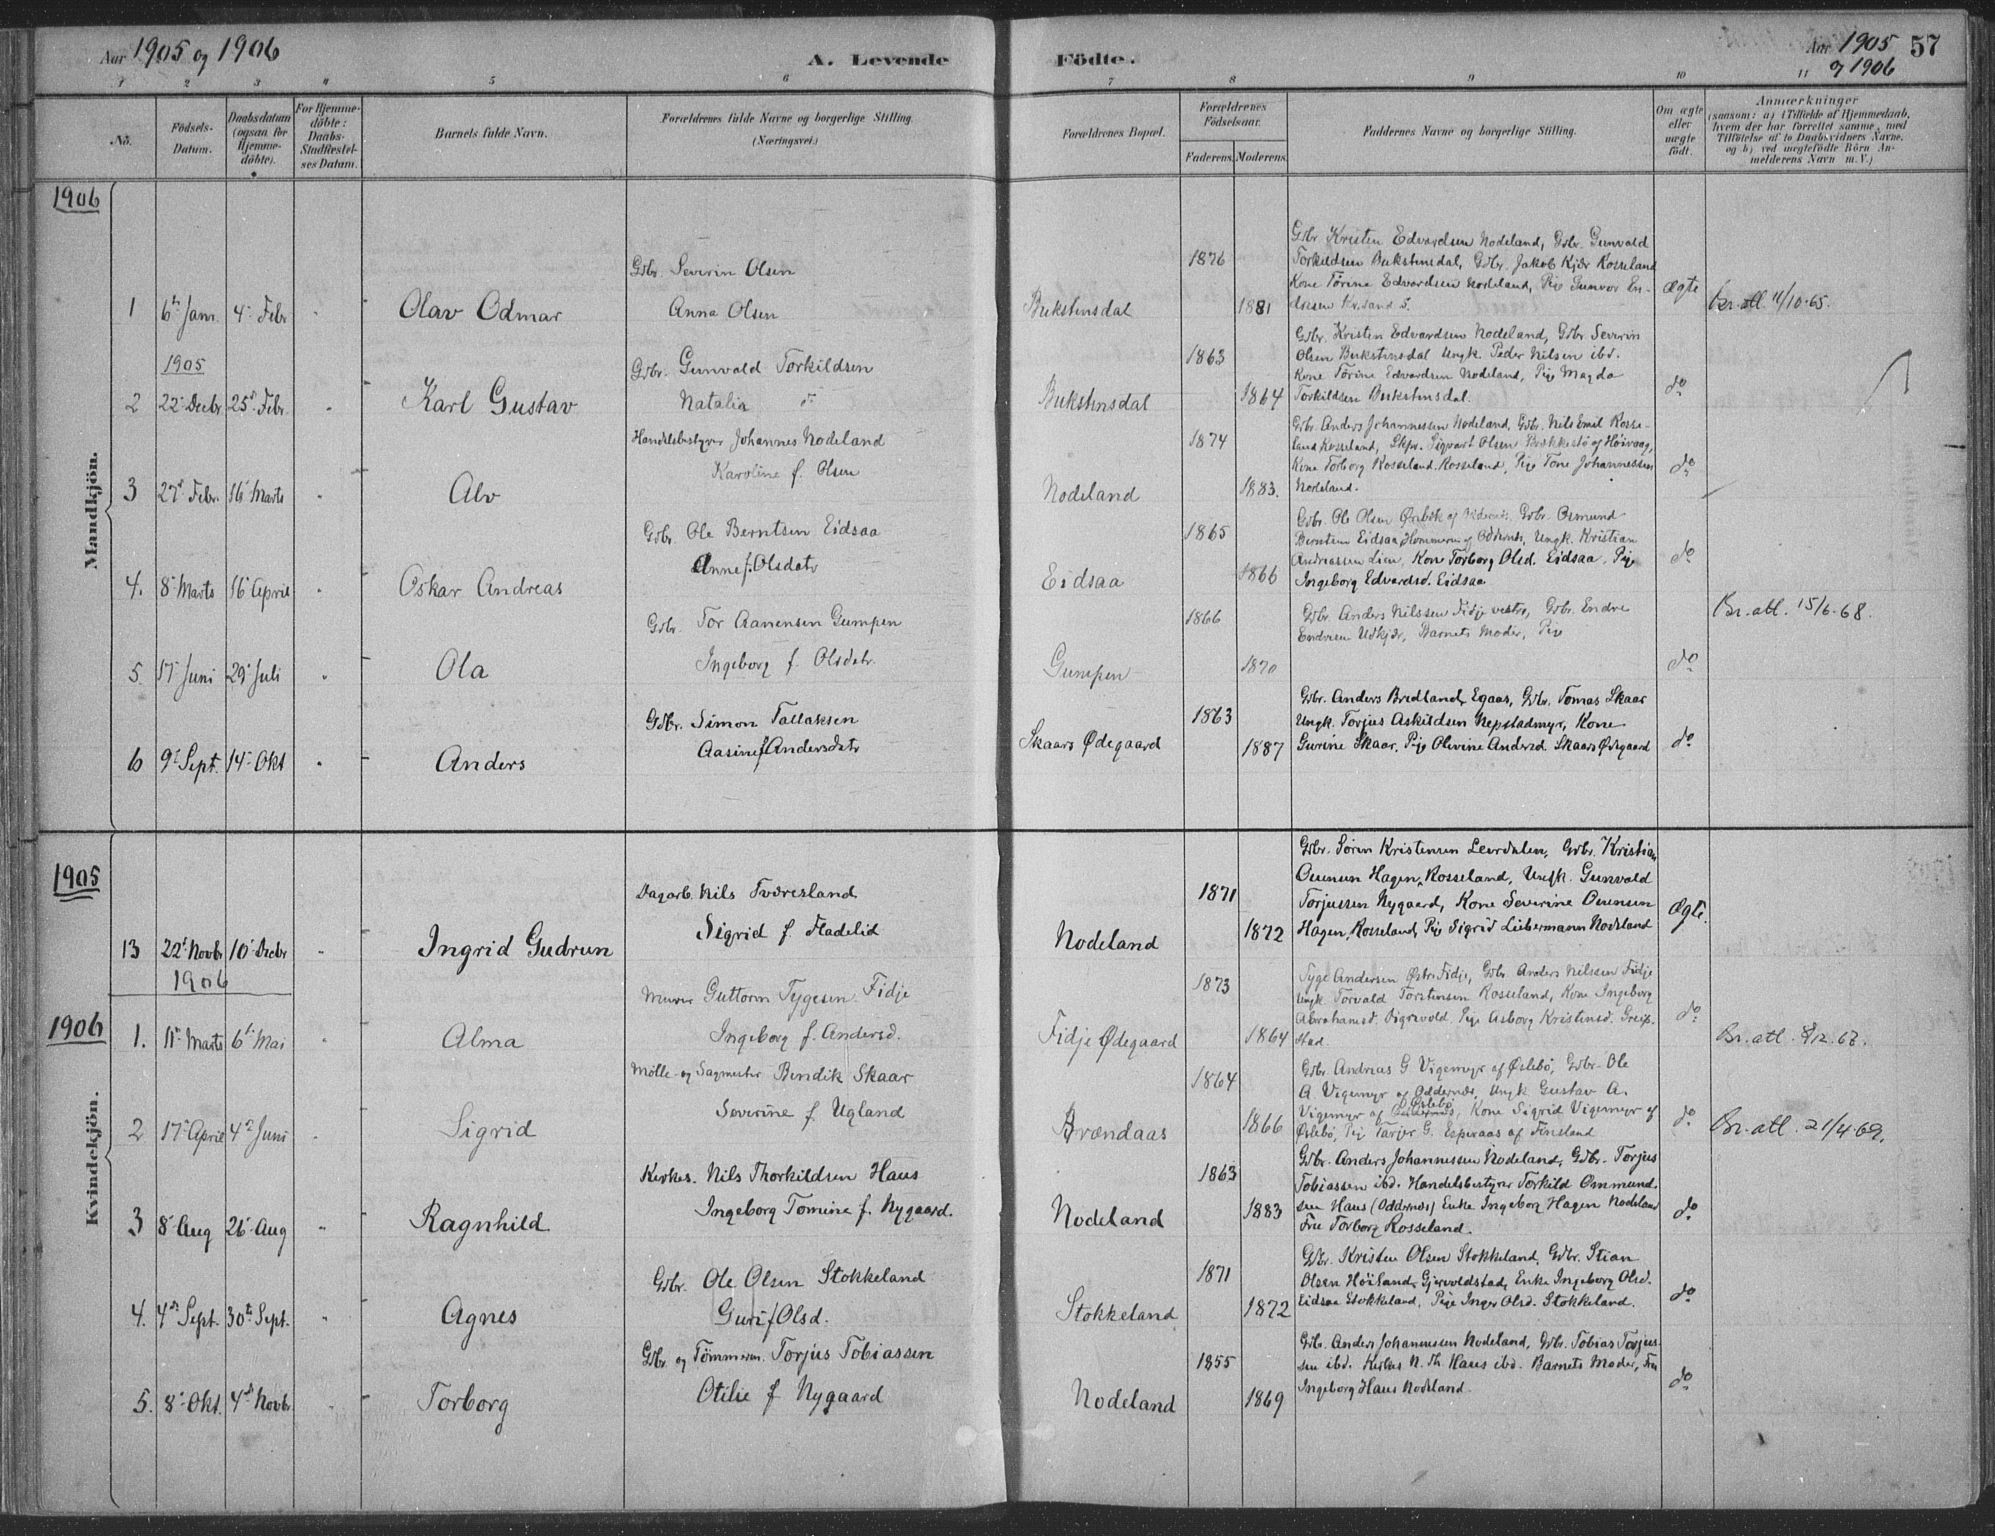 Aar 1905 og 1906
A. Levende Födte.
Aar 1905
og 1906
57
1 2 3 4 5 6 7 8 9 10 11
No.
Födsels-
Datum.
Daabsdatum
(ogsaa for
Hjemme-
döbte).
For Hjemme-
döbte:
Daabs-
Stadfæstel-
ses Datum.
Barnets fulde Navn.
Forældrenes fulde Navne og borgerlige Stilling.
(Næringsvei.)
Forældrenes Bopæl.
Forældrenes
Födselsaar.
Faderens. Moderens.
Faddernes Navne og borgerlige Stilling.
Om ægte
eller
uægte
födt.
Anmærkninger
(saasom: a) i Tilfælde af Hjemmedaab,
hvem der har forrettet samme, med
Tilföielse af to Daabsvidners Navne,
og b) ved uægtefödte Börn An-
melderens Navn m. V.)
Mandkjön.
1906
1 6te Jan. 4 Febr - Olav Odmar
Gdbr. Severin Olsen
Anna Olsen
Bukstensdal
1876
1881
Gdbr Kristen Edvardsen Nodeland, Gdbr. Gunvald
Torkildsen Bukstensdal, Gdbr. Jakob Kjær Rosseland
Kone Torine Edvardsen Nodeland, Pige Gunvor En-
dresen Kr.sand S.
Ægte
Br. att. 11/10-65.
1905
2 22 Decbr 25 Febr. Karl Gustav
Gdbr. Gunvald Torkildsen
Natalia do
Bukstensdal
1863
1864
Gdbr. Kristen Edvardsen Nodeland, Gdbr Severin
Olsen Bukstensdal Ungk. Peder Nilsen ibd.
Kone Torine Edvardsen Nodeland, Pige Magda
Torkildsen Bukstensdal.
do
3 27 Febr. 16 Marts Alv
Handelsbestyrer Johannes Nodeland
Karoline f. Olsen
Nodeland
1874
1883.
Gdbr. Anders Johannessen Nodeland, Gdbr. Nils Emil Rosse-
land Rosseland, Skpr. Sigvart Olsen Brekkestö af Höivaag,
Kone Torborg Rosseland Rosseland, Pige Tone Johannessen
Nodeland.
do
4. 8 Marts 16 April Oskar Andreas
Gdbr. Ole Berntsen Eidsaa
Anne f. Olsdatr
Eidsaa
1865
1866
Gdbr. Ole Olsen Øksbæk af Oddernes, Gdbr. Osmund
Berntsen Eidsaa, Hommeren af Oddernes, Ungk. Kristian
Andreassen Lien, Kone Torborg Olsd. Eidsaa, Pige
Ingeborg Edvardsd. Eidsaa
do
5. 17 Juni 29 Juli Ola
Gdbr. Tor Aanensen Gumpen
Ingeborg f. Olsdatr.
Gumpen
1866
1870
Gdbr. Anders Nilssen Fidje vestre, Gdbr. Endre
Endresen Udkjær, Barnets Moder, Pige
do
Br. att. 15/6-68.
6 9 Sept. 14 Okt Anders
Gdbr. Simon Tallaksen
Aasine f. Andersdatr
Skaars Ødegaard
1863
1887
Gdbr. Anders Bredland, Egaas, Gdbr. Tomas Skaar
Ungk. Torjus Askildsen Nepstadmyr, Kone
Gurine Skaar, Pige Olevine Andersd. Skaars Ødegaard
do
Kvindekjön.
1905
13 22 Novbr 10 Decbr Ingrid Gudrun
Dagarb. Nils Tveresland
Sigrid f. Fladelid
Nodeland
1871
1872
Gdbr. Sören Kristensen Leirdalen, Gdbr. Kristian
Omunsen Hagen, Rosseland, Ungk. Gunvald
Torjussen Nygaard, Kone Severine Omunsen
Hagen, Rosseland, Pige Sigrid Liebermann Nodeland
Ægte.
1906
1906
1. 11 Marts 6te Mai Alma
Murer Guttorm Tygesen Fidje
Ingeborg f. Andersd.
Fidje Ødegaard
1873
1864
Tyge Andersen Østre Fidje, Gdbr. Anders Nilssen Fidje
Ungk. Torvald Torstensen Rosseland, Kone Ingeborg
Abrahamsd. Digrevold, Pige Asborg Kristensd. Greip-
stad.
do
Br. att. 8/12-68.
2 17 April 4 Juni Sigrid
Mölle- og Sagmester Bendik Skaar
Severine f. Ugland
Brændaas
1864
1866
Gdbr Andreas G Vigemyr af Øslebö, Gdbr. Ole
A. Vigemyr af Oddernæs, Ungk Gustav A.
Vigemyr af Øslebö, Kone Sigrid Vigemyr af
Øslebö, Pige Tarjer G. Esperaas af Finsland
do
Br. att. 21/4-69.
3 8 Aug 26 Aug Ragnhild
Kirkes. Nils Thorkildsen Haus
Ingeborg Tomine f. Nygaard.
Nodeland
1863
1883
Gdbr. Anders Johannessen Nodeland, Gdbr. Torjus
Tobiassen ibd. Handelsbestyrer Torkild Ommund-
sen Haus (Oddernes) Enke Ingeborg Hagen Nodeland
Fru Torborg Rosseland.
do
4. 4de Sept. 30te Sept. Agnes
Gdbr. Ole Olsen Stokkeland
Guri f. Olsd.
Stokkeland
1871
1872
Gdbr. Kristen Olsen Stokkeland, Gdbr. Stian
Olsen Höiland, Gjervoldstad, Enke Ingeborg Olsd.
Eidsaa Stokkeland, Pige Inger Olsd. Stokkeland.
do
5. 8 Okt. 4de Novbr Torborg
Gdbr og Tömmerm. Torjus Tobiassen
Otilie f Nygaard
Nodeland
1855
1869
Gdb. Anders Johannessen Nodeland, Gdbr. Tobias Torjus-
sen ibd. Kirkes N. Th. Haus ibd. Barnets Moder, Fru
Ingeborg Haus Nodeland.
do